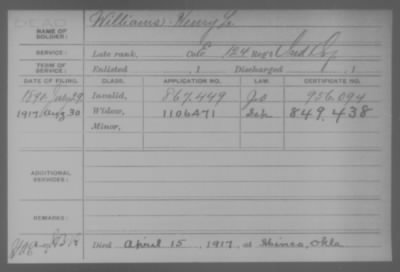 DEAD
NAME OF SOLDIER: Williams Henry L.
SERVICE: Late rank, Co. E 124 Reg't Ind Inf
TERM OF SERVICE: Enlisted , 1 Discharged , 1
DATE OF FILING. CLASS. APPLICATION NO. LAW. CERTIFICATE NO.
July 29 Invalid, 867.449 956.094
1917 Aug 30 Widow, 1106471 849.438
Minor,
ADDITIONAL SERVICES:
REMARKS:
Died April 15, 1917, at Hinco, Okla